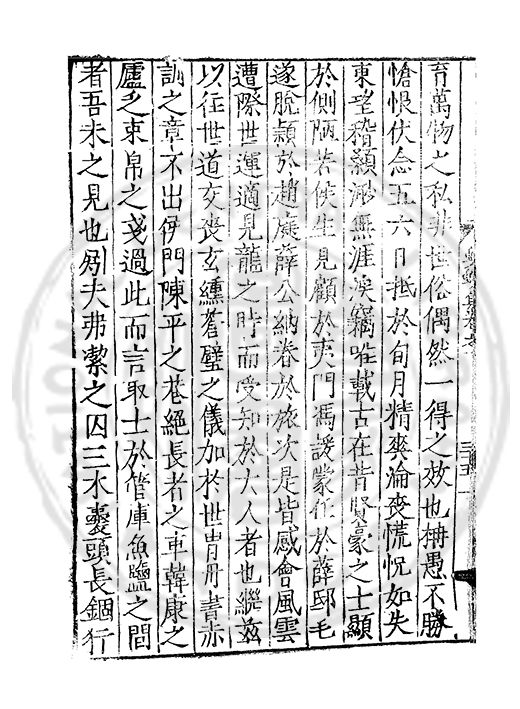 育萬物之私非世俗偶然一得之效也柟愚不勝
愴恨伏念五六日抵於旬月精爽淪喪慌怳如失
東望稽顙渺無涯涘竊唯載古在昔賢豪之士顯
於側陋若侯生見顧於夷門馮諼蒙任於薛邸毛
遂脫穎於趙庭薛公納眷於旅次是皆感會風雲
遭際世運適見龍之時而受知於大人者也繼茲
以往世道交喪玄纁蒼璧之儀加於世胄丹書赤
訓之章不出伊門陳平之巷絕長者之車韓康之
廬乏束帛之戔過此而言取士於管庫魚鹽之間
者吾未之見也矧夫弗潔之囚三木囊頭長錮行